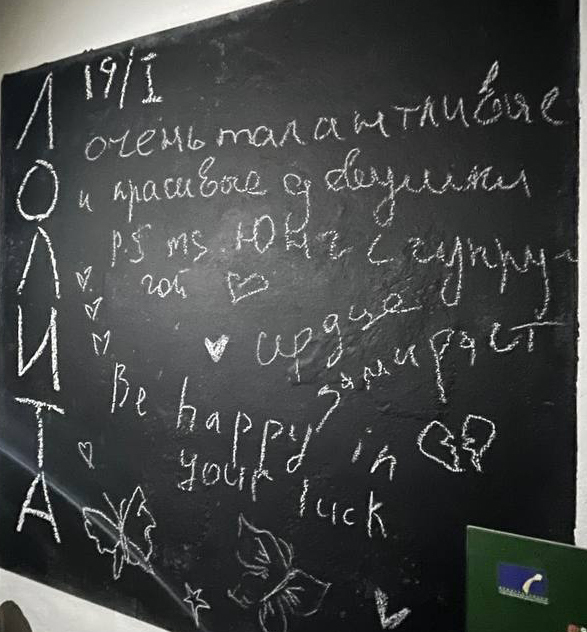 ЛОЛИТА
19/I
очень талантливые
и красивые девушки
P.S ms. Юнг с
гой
сердце
замирает
Be happy in
your luck